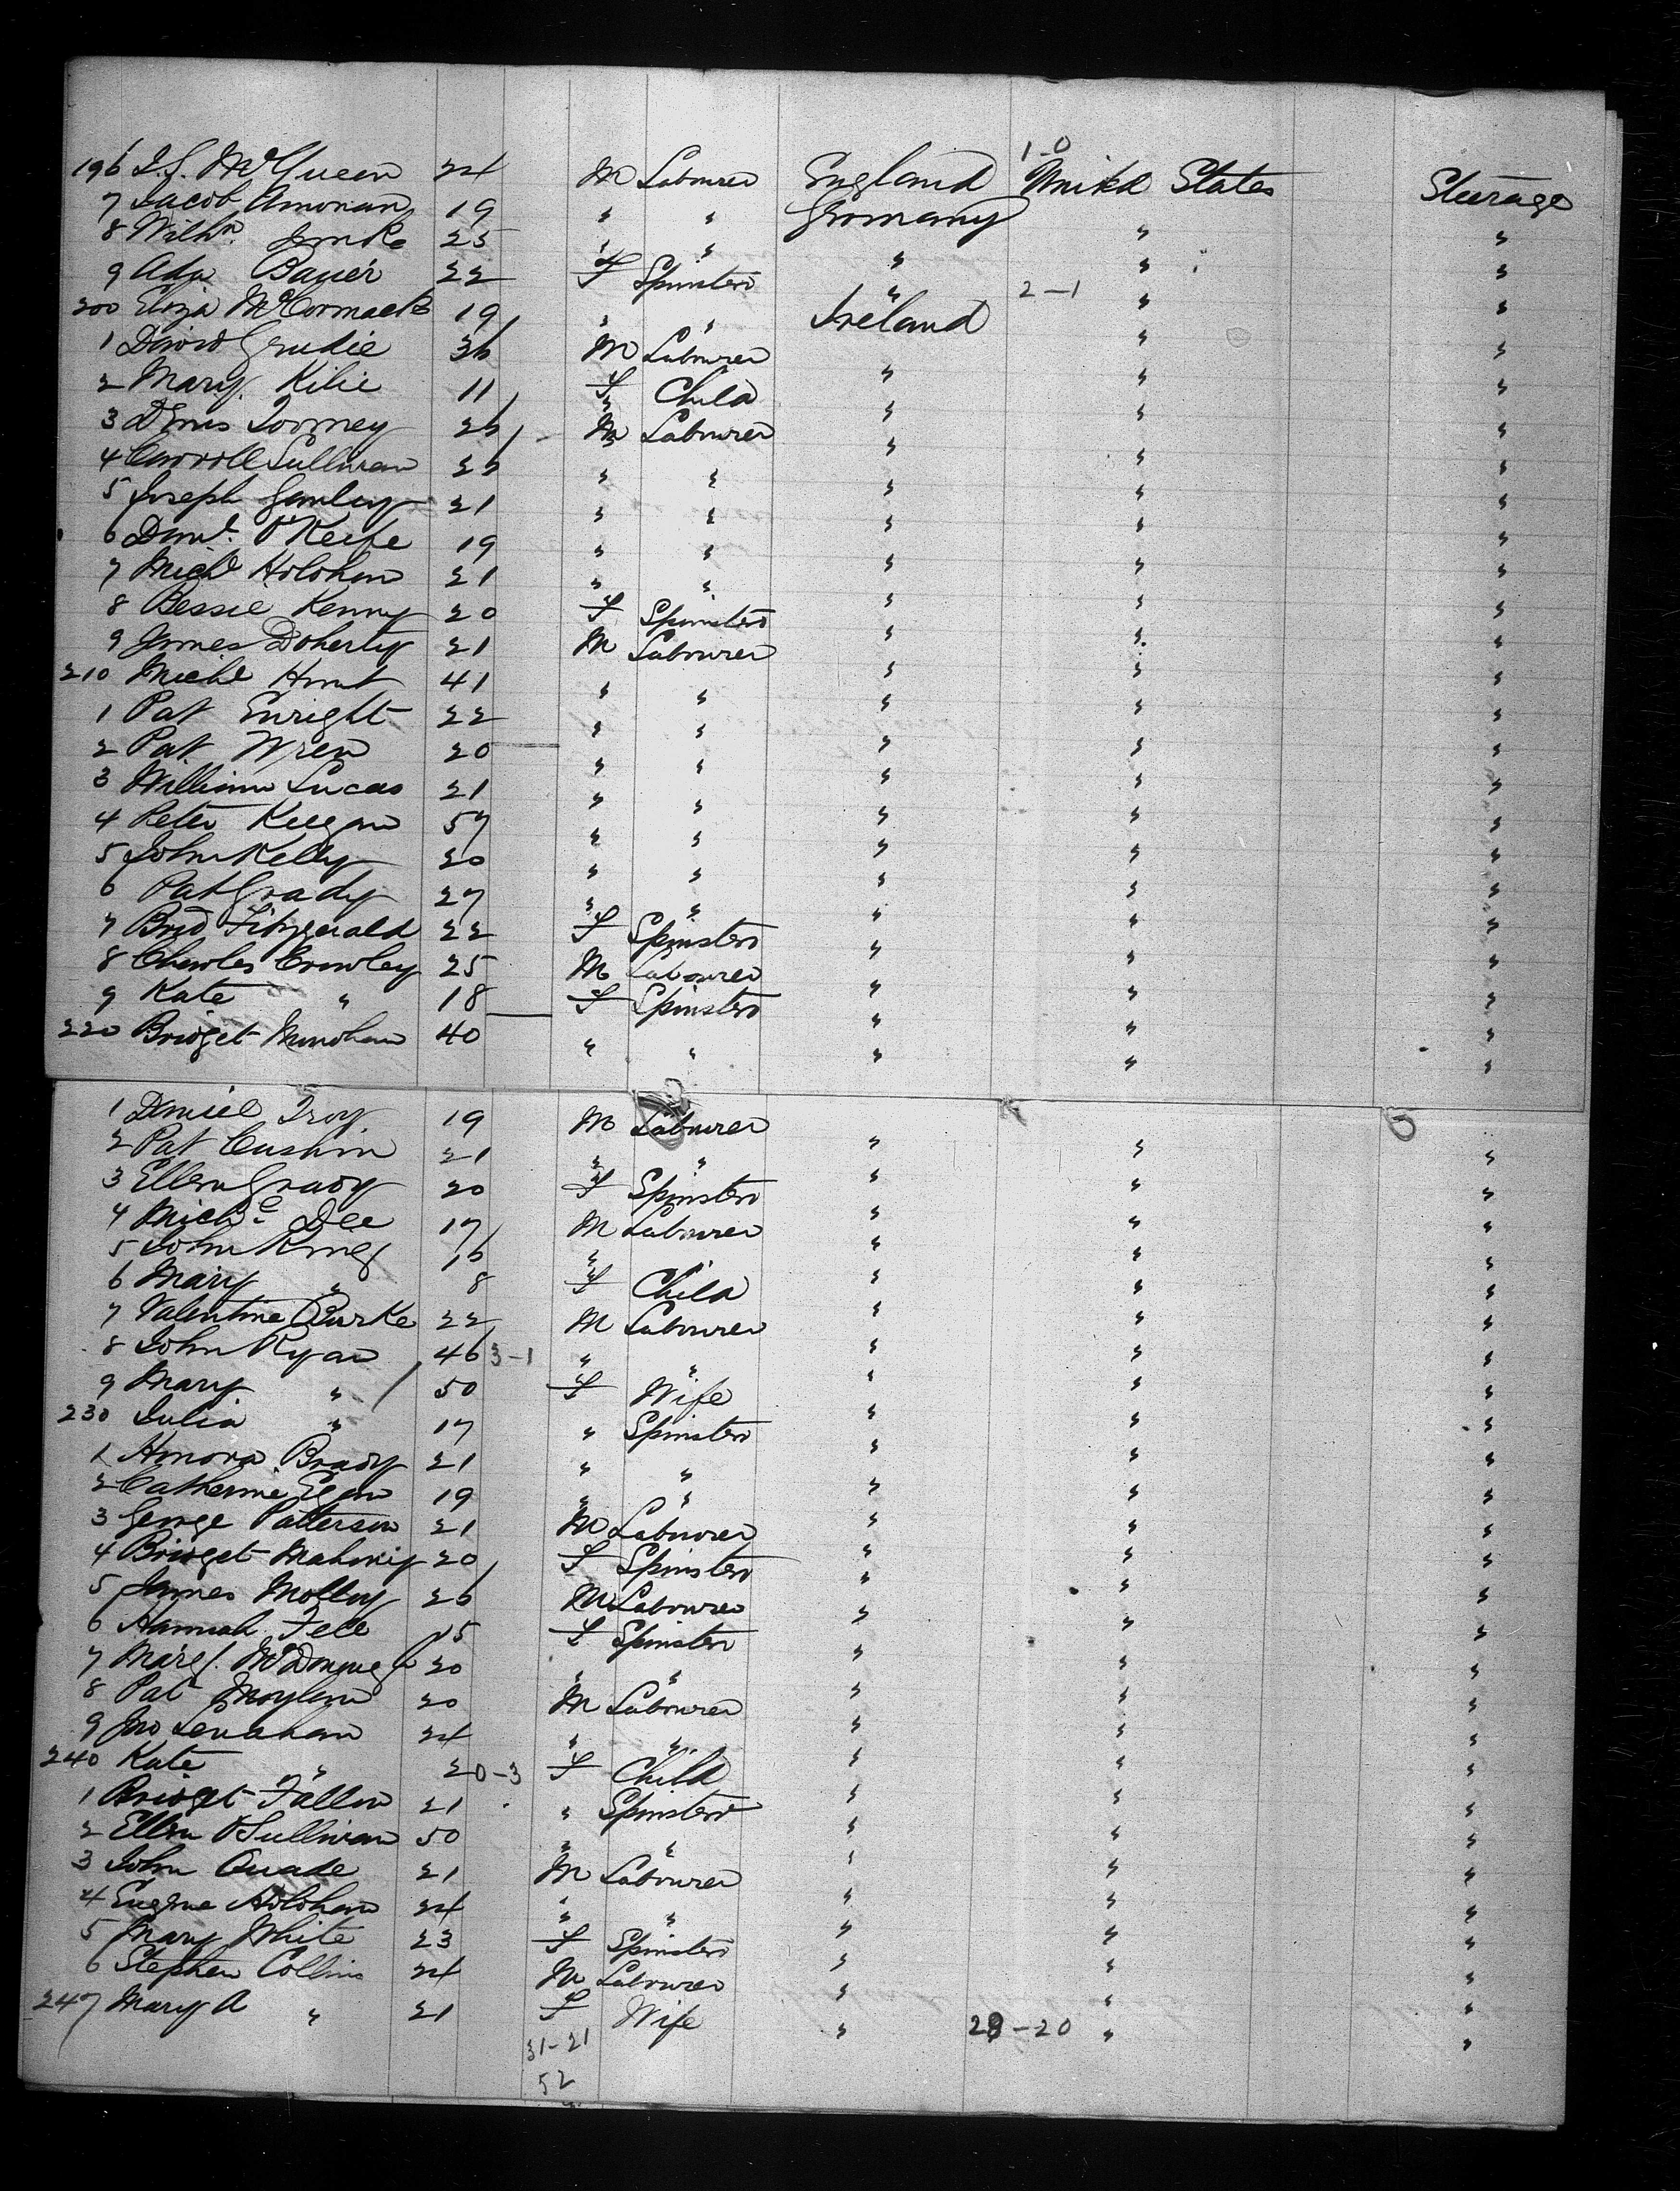 1-0
196 J. J. McQueen 24 M Labourer England United States Steerage
7 Jacob Amonan 19 " " Germany " "
8 Wilhm. Jmke 25 " " " " "
9 Ada Bauer 22 F Spinster " 2-1 " "
200 Eliza McCormack 19 " " Ireland " "
1 David Grudie 36 M Labourer " " "
2 Mary Kilie 11 F Child " " "
3 Denis Toomey 26 M Labourer " " "
4 Carroll Sullivan 26 " " " " "
5 Joseph Ganley 21 " " " " "
6 Danl. O'Keefe 19 " " " " "
7 Michl Holohan 21 " " " " "
8 Bessie Kenny 20 F Spinster " " "
9 James Doherty 21 M Labourer " " "
210 Michl Hunt 41 " " " " "
1 Pat Enright 22 " " " " "
2 Pat Wren 20 " " " " "
3 William Lucas 21 " " " " "
4 Peter Keegan 57 " " " " "
5 John Kelly 20 " " " " "
6 Pat Grady 27 " " " " "
7 Brid Fitzgerald 22 F Spinster " " "
8 Charles Crowley 25 M Labourer " " "
9 Kate " 18 F Spinster " " "
220 Bridget Monohan 40 " " " " "
1 Daniel Troy 19 M Labourer " " "
2 Pat Cushin 21 " " " " "
3 Ellen Grady 20 F Spinster " " "
4 Michl Dee 17 M Labourer " " "
5 John King 16 " " " "
6 Mary " 8 F Child " " "
7 Valentine Burke 22 M Labourer " " "
8 John Ryan 46 3-1 " " " " "
9 Mary " 50 F Wife " " "
230 Julia " 17 " Spinster " " "
1 Honora Brady 21 " " " " "
2 Catherine Egan 19 " " " " "
3 George Patterson 21 M Labourer " " "
4 Bridget Mahoney 20 F Spinster " " "
5 James Molloy 26 M Labourer " " "
6 Hannah Fell 15 F Spinster " " "
7 Margt. McDonnug 20 " " " " "
8 Pat Moylan 20 M Labourer " " "
9 Jno Lenahan 24 " " " " "
240 Kate " 2 0-3 F Child " " "
1 Bridget Fallon 21 " Spinster " " "
2 Ellen O'Sullivan 50 " " " " "
3 John Quade 21 M Labourer " " "
4 Eugene Holohan 24 " " " " "
5 Mary White 23 F Spinster " " "
6 Stephen Collins 24 M Labourer " " "
247 Mary A " 21 F Wife " 29-20 " "
31-21
52